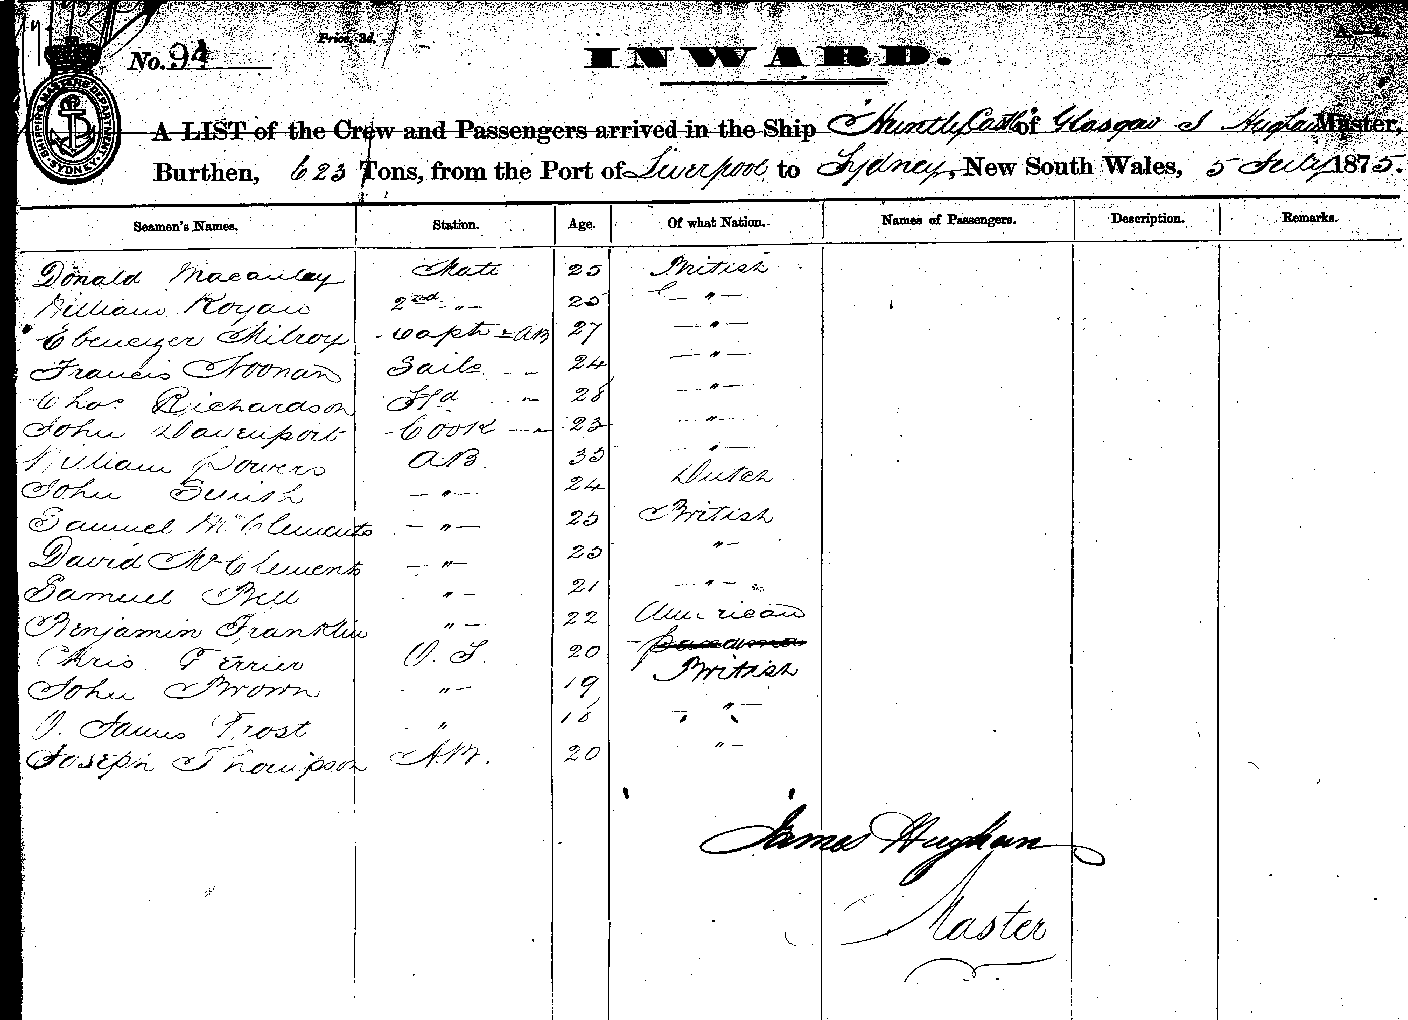 No. 94
Price, 3d.
INWARD.
A LIST of the Crew and Passengers arrived in the Ship Huntly Castle of Glasgow J Hughan Master,
Burthen, 623 Tons, from the Port of Liverpool to Sydney, New South Wales, 5 July 1875.
Seamen's Names. Station. Age. Of what Nation. Names of Passengers. Description. Remarks.
Donald Macauley Mate 25 British
William 2nd " 25 "
Ebenezer Milroy Capt = AB 27 "
Francis Noonan Sails 24 "
Chas Richardson 28 "
John Davenport Cook 23 "
William Powers AB. 35 "
John 24 Dutch
Samuel McClements " 25 British
David McClements " 25 "
Samuel Bell " 21 "
Benjamin Franklin " 22 American
Chris Ferrier O.S. 20 British
John Brown " 19
O. James Frost " 18 "
Joseph Thompson A.B. 20 "
James Hughan
Master